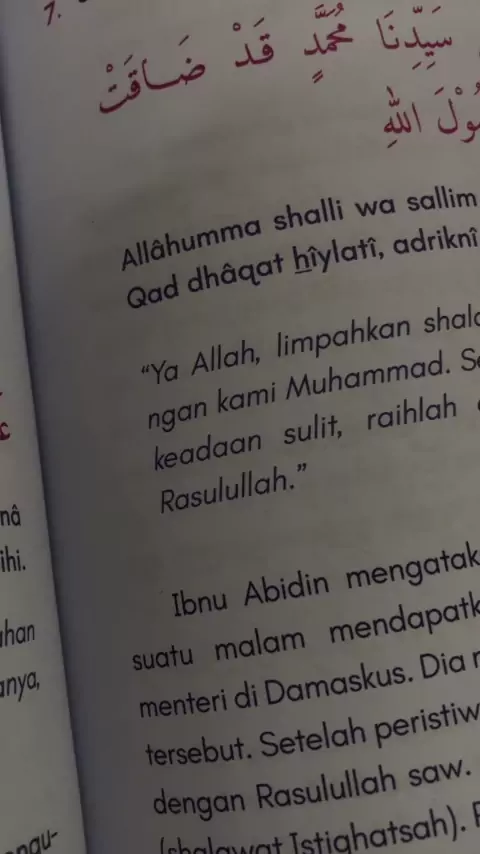 7.
سَيِّدِنَا مُحَمَّدٍ قَدْ ضَاقَتْ
اللهِ
Allâhumma shalli wa sallim
Qad dhâqat hîylatî, adriknî
"Ya Allah, limpahkan
ngan kami Muhammad.
keadaan sulit, raihlah
Rasulullah."
Ibnu Abidin
suatu malam
menteri di Damaskus. Dia
tersebut. Setelah
dengan Rasulullah saw.
(shalawat Istighatsah).
nâ
ihi.
anya,